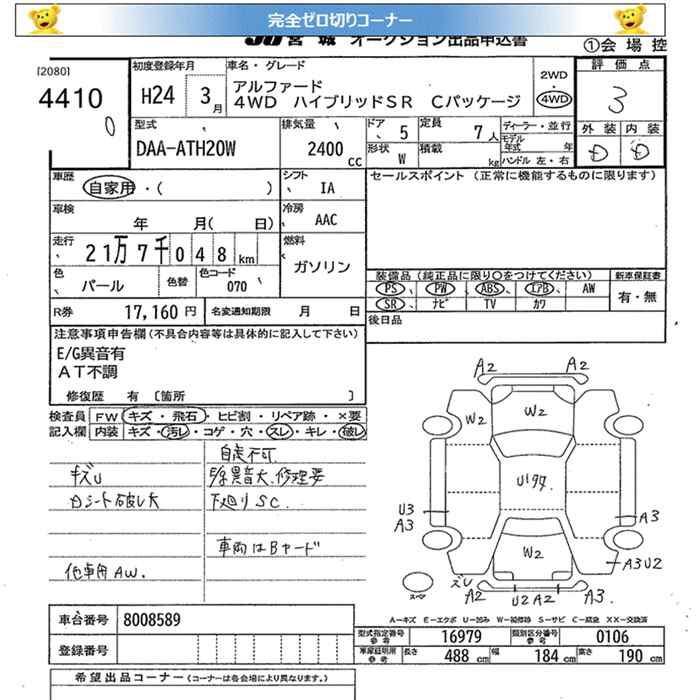 完全ゼロ切りコーナー
JU宮城 オークション出品申込書
①会場控
[2080]
4410
0
初度登録年月
H24 3月
車名・グレード
アルファード
4WD ハイブリッドSR Cパッケージ
2WD
・
4WD
評価点
3
外装 内装
D D
型式
DAA-ATH20W
排気量
2400 cc
ドア 5
形状 W
定員 7人
積載 kg
ディーラー・並行
モデル年式 年
ハンドル 左・右
車歴
自家用・( )
シフト
IA
セールスポイント (正常に機能するものに限ります)
車検
年 月( 日)
冷房
AAC
走行
21万7千048km
燃料
ガソリン
色
パール
色替
色コード
070
装備品 (純正品に限り○をつけてください)
新車保証書
PS PW ABS エアB AW
SR ナビ TV カワ
有・無
R券
17,160円
名変通知期限 月 日
後日品
注意事項申告欄 (不具合内容等は具体的に記入して下さい)
E/G異音有
AT不調
修復歴 有 [箇所 ]
検査員 FW キズ・飛石・ヒビ割・リペア跡・×要
記入欄 内装 キズ・汚レ・コゲ・穴・スレ・キレ・破レ
自走不可
キズU
異音大、修理要
シート破レ大
下廻りSC.
車両はBヤード
他車用AW.
A2 A2
W2
W2
U1
U3
A3
A3
W2
A3U2
スペア
A2
U2A2
A3
A－キズ E－エクボ U－凹み W－補修跡 S－サビ C－腐食 XX－交換済
車台番号 8008589
登録番号
型式指定番号 参考 16979
類別区分番号 参考 0106
車庫証明用 参考 長さ 488cm 幅 184cm 高さ 190cm
希望出品コーナー (コーナーは各会場により異なります。)